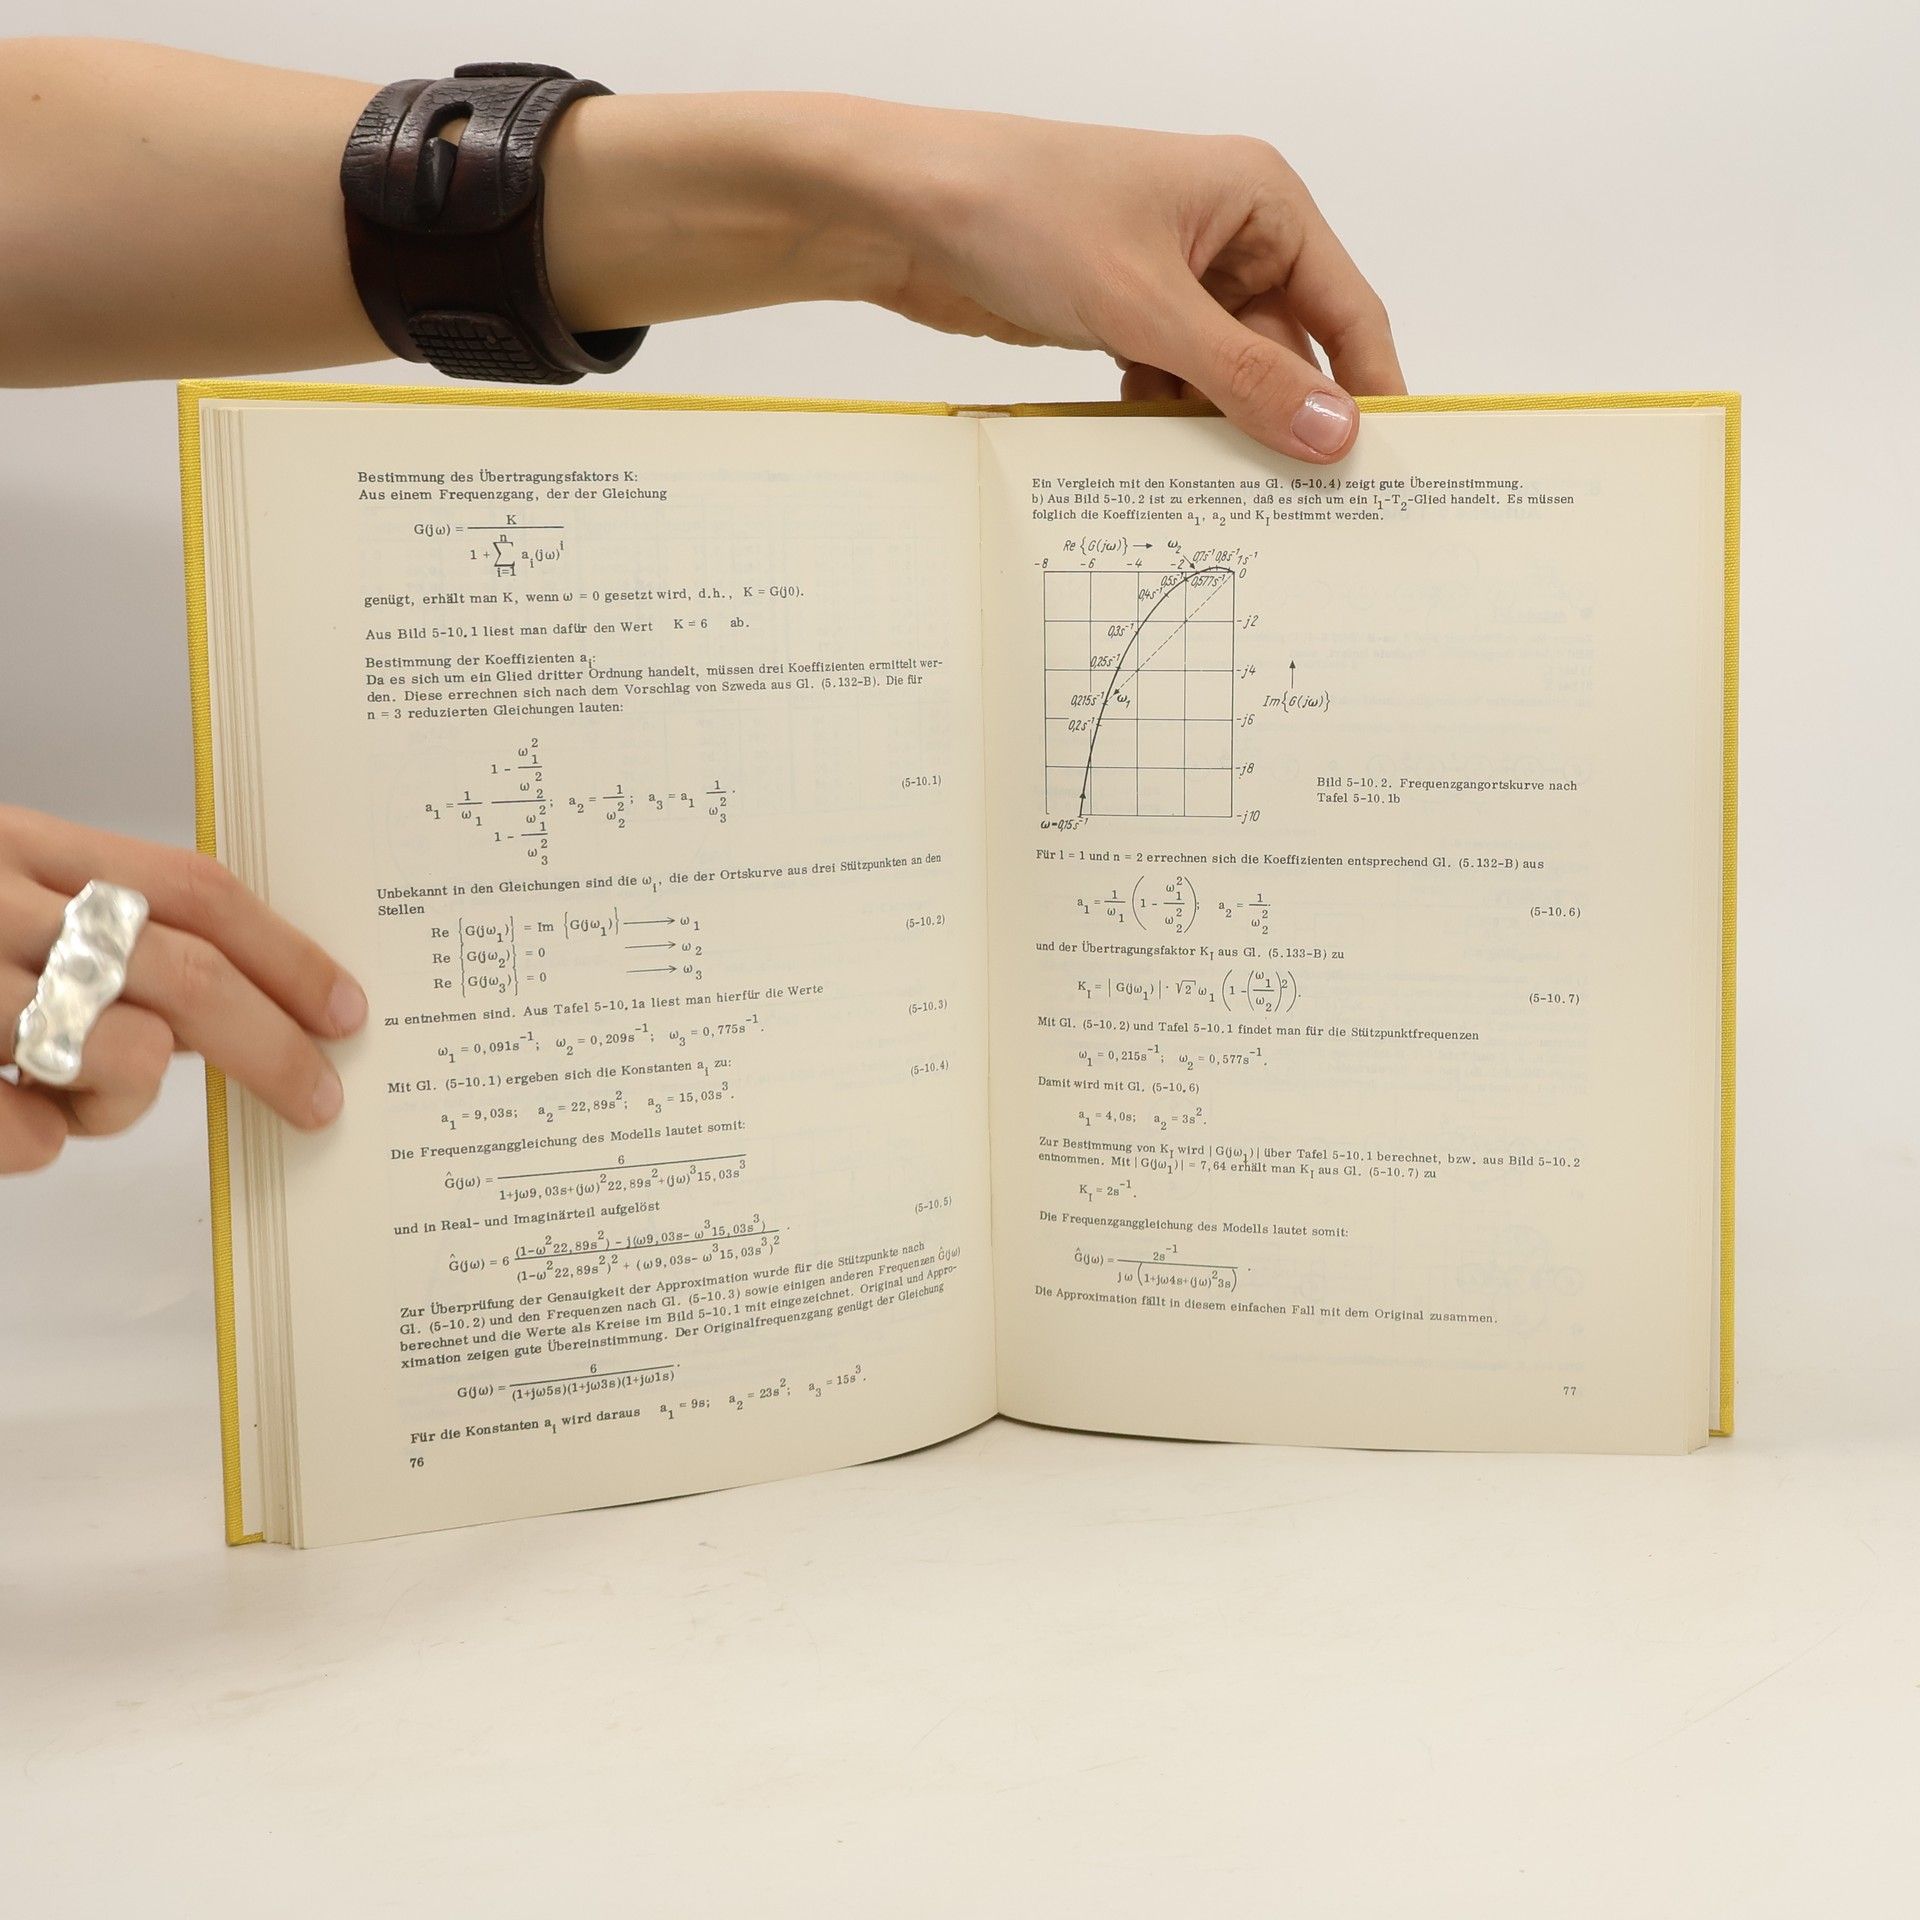 Bestimmung des Übertragungsfaktors K:
Aus einem Frequenzgang, der der Gleichung
G(jω) = K / (1 + ∑_{i=1}^{n} a_i(jω)^i)
genügt, erhält man K, wenn ω = 0 gesetzt wird, d.h., K = G(j0).
Aus Bild 5-10.1 liest man dafür den Wert K = 6 ab.
Bestimmung der Koeffizienten a_i:
Da es sich um ein Glied dritter Ordnung handelt, müssen drei Koeffizienten ermittelt wer-
den. Diese errechnen sich nach dem Vorschlag von Szweda aus Gl. (5.132-B). Die für
n = 3 reduzierten Gleichungen lauten:
a_1 = 1/ω_1 · (1 - ω_1²/ω_2²) / (1 - ω_1²/ω_3²); a_2 = 1/ω_2²; a_3 = a_1 1/ω_3². (5-10.1)
Unbekannt in den Gleichungen sind die ω_i, die der Ortskurve aus drei Stützpunkten an den
Stellen
Re {G(jω_1)} = Im {G(jω_1)} ⟶ ω_1 (5-10.2)
Re {G(jω_2)} = 0 ⟶ ω_2
Re {G(jω_3)} = 0 ⟶ ω_3
zu entnehmen sind. Aus Tafel 5-10.1a liest man hierfür die Werte
ω_1 = 0,091s⁻¹; ω_2 = 0,209s⁻¹; ω_3 = 0,775s⁻¹. (5-10.3)
Mit Gl. (5-10.1) ergeben sich die Konstanten a_i zu:
a_1 = 9,03s; a_2 = 22,89s²; a_3 = 15,03s³. (5-10.4)
Die Frequenzganggleichung des Modells lautet somit:
Ĝ(jω) = 6 / (1+jω9,03s+(jω)²22,89s²+(jω)³15,03s³)
und in Real- und Imaginärteil aufgelöst
Ĝ(jω) = 6 ((1-ω²22,89s²) - j(ω9,03s- ω³15,03s³)) / ((1-ω²22,89s²)² + (ω9,03s- ω³15,03s³)²). (5-10.5)
Zur Überprüfung der Genauigkeit der Approximation wurde für die Stützpunkte nach
Gl. (5-10.2) und den Frequenzen nach Gl. (5-10.3) sowie einigen anderen Frequenzen Ĝ(jω)
berechnet und die Werte als Kreise im Bild 5-10.1 mit eingezeichnet. Original und Appro-
ximation zeigen gute Übereinstimmung. Der Originalfrequenzgang genügt der Gleichung
G(jω) = 6 / ((1+jω5s)(1+jω3s)(1+jω1s)).
Für die Konstanten a_i wird daraus a_1 = 9s; a_2 = 23s²; a_3 = 15s³.
76
Ein Vergleich mit den Konstanten aus Gl. (5-10.4) zeigt gute Übereinstimmung.
b) Aus Bild 5-10.2 ist zu erkennen, daß es sich um ein I_1-T_2-Glied handelt. Es müssen
folglich die Koeffizienten a_1, a_2 und K_I bestimmt werden.
Re {G(jω)} ⟶ ω_2 0,7s⁻¹ 0,8s⁻¹ 1s⁻¹
-8 -6 -4 -2 0
0,5s⁻¹ 0,577s⁻¹
0,4s⁻¹
-j2
0,3s⁻¹
0,25s⁻¹ -j4
0,215s⁻¹ ω_1 Im{G(jω)}
0,2s⁻¹ -j6
-j8
-j10
ω=0,15s⁻¹
Bild 5-10.2. Frequenzgangortskurve nach
Tafel 5-10.1b
Für l = 1 und n = 2 errechnen sich die Koeffizienten entsprechend Gl. (5.132-B) aus
a_1 = 1/ω_1 (1 - ω_1²/ω_2²); a_2 = 1/ω_2² (5-10.6)
und der Übertragungsfaktor K_I aus Gl. (5.133-B) zu
K_I = |G(jω_1)| · √2 ω_1 (1 -(ω_1/ω_2)²). (5-10.7)
Mit Gl. (5-10.2) und Tafel 5-10.1 findet man für die Stützpunktfrequenzen
ω_1 = 0,215s⁻¹; ω_2 = 0,577s⁻¹.
Damit wird mit Gl. (5-10.6)
a_1 = 4,0s; a_2 = 3s².
Zur Bestimmung von K_I wird |G(jω_1)| über Tafel 5-10.1 berechnet, bzw. aus Bild 5-10.2
entnommen. Mit |G(jω_1)| = 7,64 erhält man K_I aus Gl. (5-10.7) zu
K_I = 2s⁻¹.
Die Frequenzganggleichung des Modells lautet somit:
Ĝ(jω) = 2s⁻¹ / (jω (1+jω4s+(jω)²3s)).
Die Approximation fällt in diesem einfachen Fall mit dem Original zusammen.
77